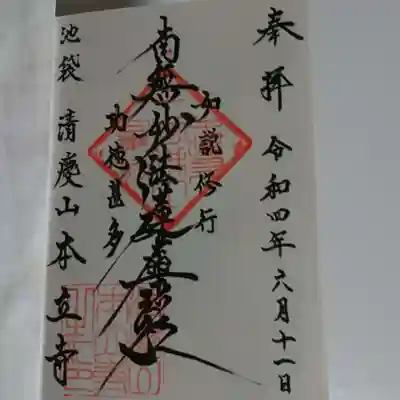 奉拝 令和四年六月十一日
如説修行
南無妙法蓮華経
功徳甚多
池袋 清慶山本立寺